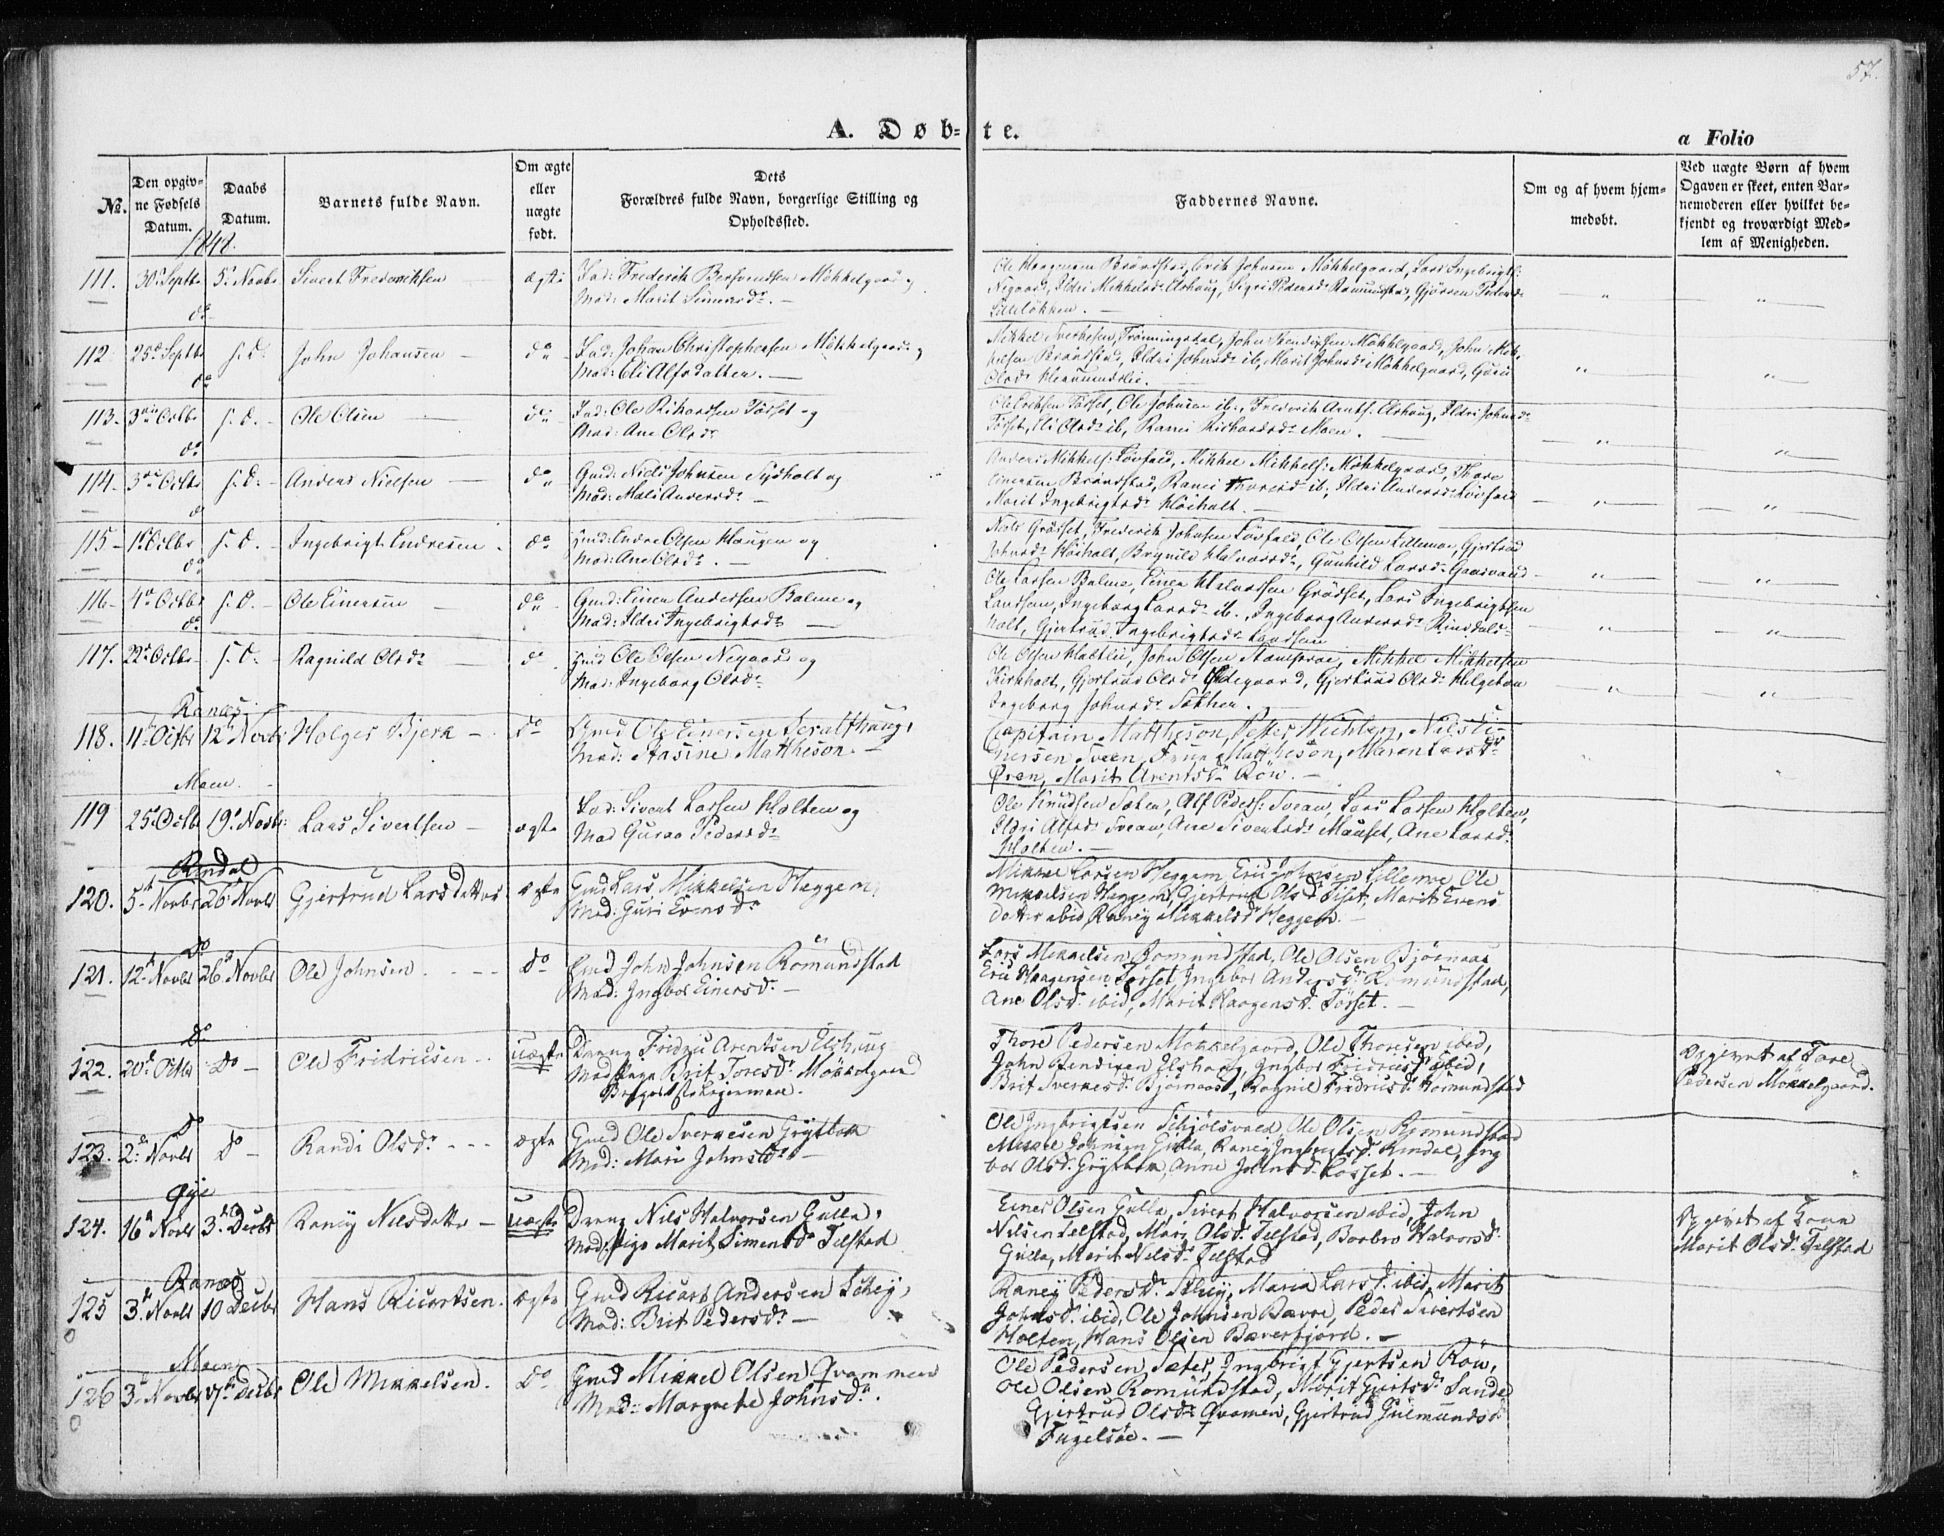 57.
A. Døb-te.
a Folio
No.
Den opgiv-
ne Fødsels
Datum.
Daabs
Datum.
Barnets fulde Navn.
Om ægte
eller
uægte
født.
Dets
Forældres fulde Navn, borgerlige Stilling og
Opholdssted.
Faddernes Navne.
Om og af hvem hjem-
medøbt.
Ved uægte Børn af hvem
Opgaven er skeet, enten Bar-
nemoderen eller hvilket be-
kjendt og troværdigt Med-
lem af Menigheden.
111. 30' Septbr 5' Novbr Sivert Frederiksen ægte Fad: Frederik Bersvendsen Mökkelgaard og
Mad: Marit Simensdr. —
Ole Haagensen Bröndstad, Erik Johnsen Mökkelgaard, Lars Ingebrigts:
Negaard, Ildri Mikkelsdr Elshaug, Sigri Pedersdr Romundstad, Gjörren Pedersdr
Lillelökken. —
do
112. 25de Septbr s. D. John Johansen — do Fad: Johan Christophersen Mökkelgaard og
Mad: Eli Alfsdatter. —
Mikkel Sverkesen Trönningsdal, John Stendixsen Mökkelgaard, John Mik-
kelsen Bröndstad, Ildri Johnsdr ib, Marit Johnsdr Mökkelgaard, Guru
Olsdr Hermundslie.
do
113. 3die Octbr s. D. Ole Olsen — do Fad: Ole Rikardsen Törset og
Mad: Ane Olsdr
Ole Eriksen Törset, Ole Johnsen ib., Frederik Arnts. Elshaug, Ildri Johnsdr
Törset, Eli Olsdr ib, Ranei Rikardsdr Moen.
do
114. 3die Octbr s. D. Anders Nielsen — do Gmd: Niels Johnsen Nydhalt og
Mad: Mali Andersdr —
Anders Mikkels: Lövfald, Mikkel Mikkels: Mökkelgaard, Thore
Einersen Bröndstad, Ranei Thoresdr ib; Ildri Andersdr Lövfald
Marit Ingebrigtsdr Höihalt.
115 1st Octbr s. D. Ingebrigt Endresen do Gmd: Endre Olsen Haugen og
Mad: Ane Olsdr. —
Niels Grödset, Frederik Johnsen Lövfald, Ole Olsen Lillemoe, Gjertrud
Johnsdr Höihalt, Brynild Halvorsdr, Gunhild Larsdr Gaasvand
do
116 4de Octbr s. D. Ole Einersen do Gmd: Einer Andersen Balme og
Mad: Ildri Ingebrigtsdr —
Ole Larsen Balme, Einer Halvorsen Grödset, Lars Ingebrigtsen
Landsem, Ingeborg Larsdr ib., Ingeborg Andersdr Rindals-
halt, Gjertrud Ingebrigtsdr Landsem
do
117. 22de Octbr s. D. Ragnild Olsdr do Gmd Ole Olsen Negaard og
Mad: Ingeborg Olsdr
Ole Olsen Hatlie, John Olsen Stomproe, Mikkel Mikkelsen
Kirkhalt, Gjertrud Olsdr Ödegaard, Gjertrud Olsdr Helgetun
Ingeborg Johnsdr Sökken.
Ranæs
118. 11te Octbr 12te Novbr Holger Bjerk — do Gmd Ole Einersen Geralthaug,
Mad: Stasine Mattheson. —
Capitain Mattheson, Petter Wichlen, Nils Ei-
nersen Sveen, Frue Mattheson, Maren Larsdr
Øren, Marit Arentsdr Röv. —
Moen
119 25de Octbr 19de Novbr Lars Sivertsen — ægte Fad: Sivert Larsen Holten og
Mad Guroe Pedersdr
Ole Knudsen Sæter, Alf Peders: Svean, Lars Larsen Holten,
Ildri Alfsdr Svean, Ane Sivertsdr Mauset, Ane Larsdr
Holten. —
Rindal
120. 5te Novbr 26te Novbr Gjertrud Larsdatter ægte Gmd Lars Mikkelsen Heggem,
Mad: Guri Evensdr
Mikkel Larsen Heggem, Eric Johnsen Lillemoe, Ole
Mikkelsen Heggem, Gjertrud Olsdr Tiset, Marit Evens
datter ibid, Raney Mikkelsdr Heggem. —
do
121. 12te Novbr 26te Novbr Ole Johnsen. do Gmd John Johnsen Romundstad
Mad: Ingbor Einersdr. —
Lars Mikkelsen Romundstad, Ole Olsen Bjørnaas
Eric Haagensen Törset, Ingbor Andersdr Romundstad,
Ane Olsdr. ibid, Marit Haagensdr. Törset. —
do
122. 20de Octbr Do — Ole Fridricsen uægte Dreng Fridric Arentsen Elshaug
Mad Pige Brit Toresdr. Mökkelgaard
Begges 1ste Leiermaal.
Thore Pedersen Mökkelgaard, Ole Thoresen ibid,
John Stendixen Elshaug, Ingbor Fridricsdr ibid,
Brit Sverkesdr. Bjørnaas, Ragnil Fridricsdr. Romundstad
Opgivet af Tore
Pedersen Mökkelgaard.
do
123. 2de Novbr Do — Randi Olsdr. ægte Gmd Ole Sverkesen Grytbak
Mad: Mari Johnsdr —
Ole Ingbrigtsen Schjölsvold, Ole Olsen Romundstad
Mikkel Johnsen Gulla, Raney Ingbrigtsdr. Rindal, Ing
bor Olsdr. Grytbak, Anne Johnsdr. Losset. —
Øye
124. 16de Novbr 3die Decbr Raney Nilsdatter — uægte Dreng Nils Halvorsen Gulla,
Mad: Pige Marit Simensdr Telstad
Einer Olsen Gulla, Sivert Halvorsen ibid, John
Nilsen Telstad, Mari Olsdr. Telstad, Barbro Halvorsdr.
Gulla, Marit Nilsdr. Telstad
Opgivet af Kona
Marit Olsdr. Telstad
Ranæs
125 3die Novbr 10 Decbr Hans Ricartsen. ægte Gmd Ricart Andersen Schey,
Mad: Brit Pedersdr. —
Raney Pedersdr. Schey, Maria Larsdr. ibid, Marit
Johnsdr. ibid, Ole Johnsen Bævre, Peder Sivertsen
Holten, Hans Olsen Bæverfjord. —
Moen
126 3die Novbr 17de Decbr Ole Mikkelsen. Do Gmd Mikkel Olsen Qvammen
Mad: Margrete Johnsdr.
Ole Pedersen Sæter, Ingbrigt Gjertsen Röv,
Ole Olsen Romundstad, Marit Gjertsdr. Sande
Gjertrud Olsdr. Qvamen, Gjertrud Gulmundsdr
Fugelsöe. —